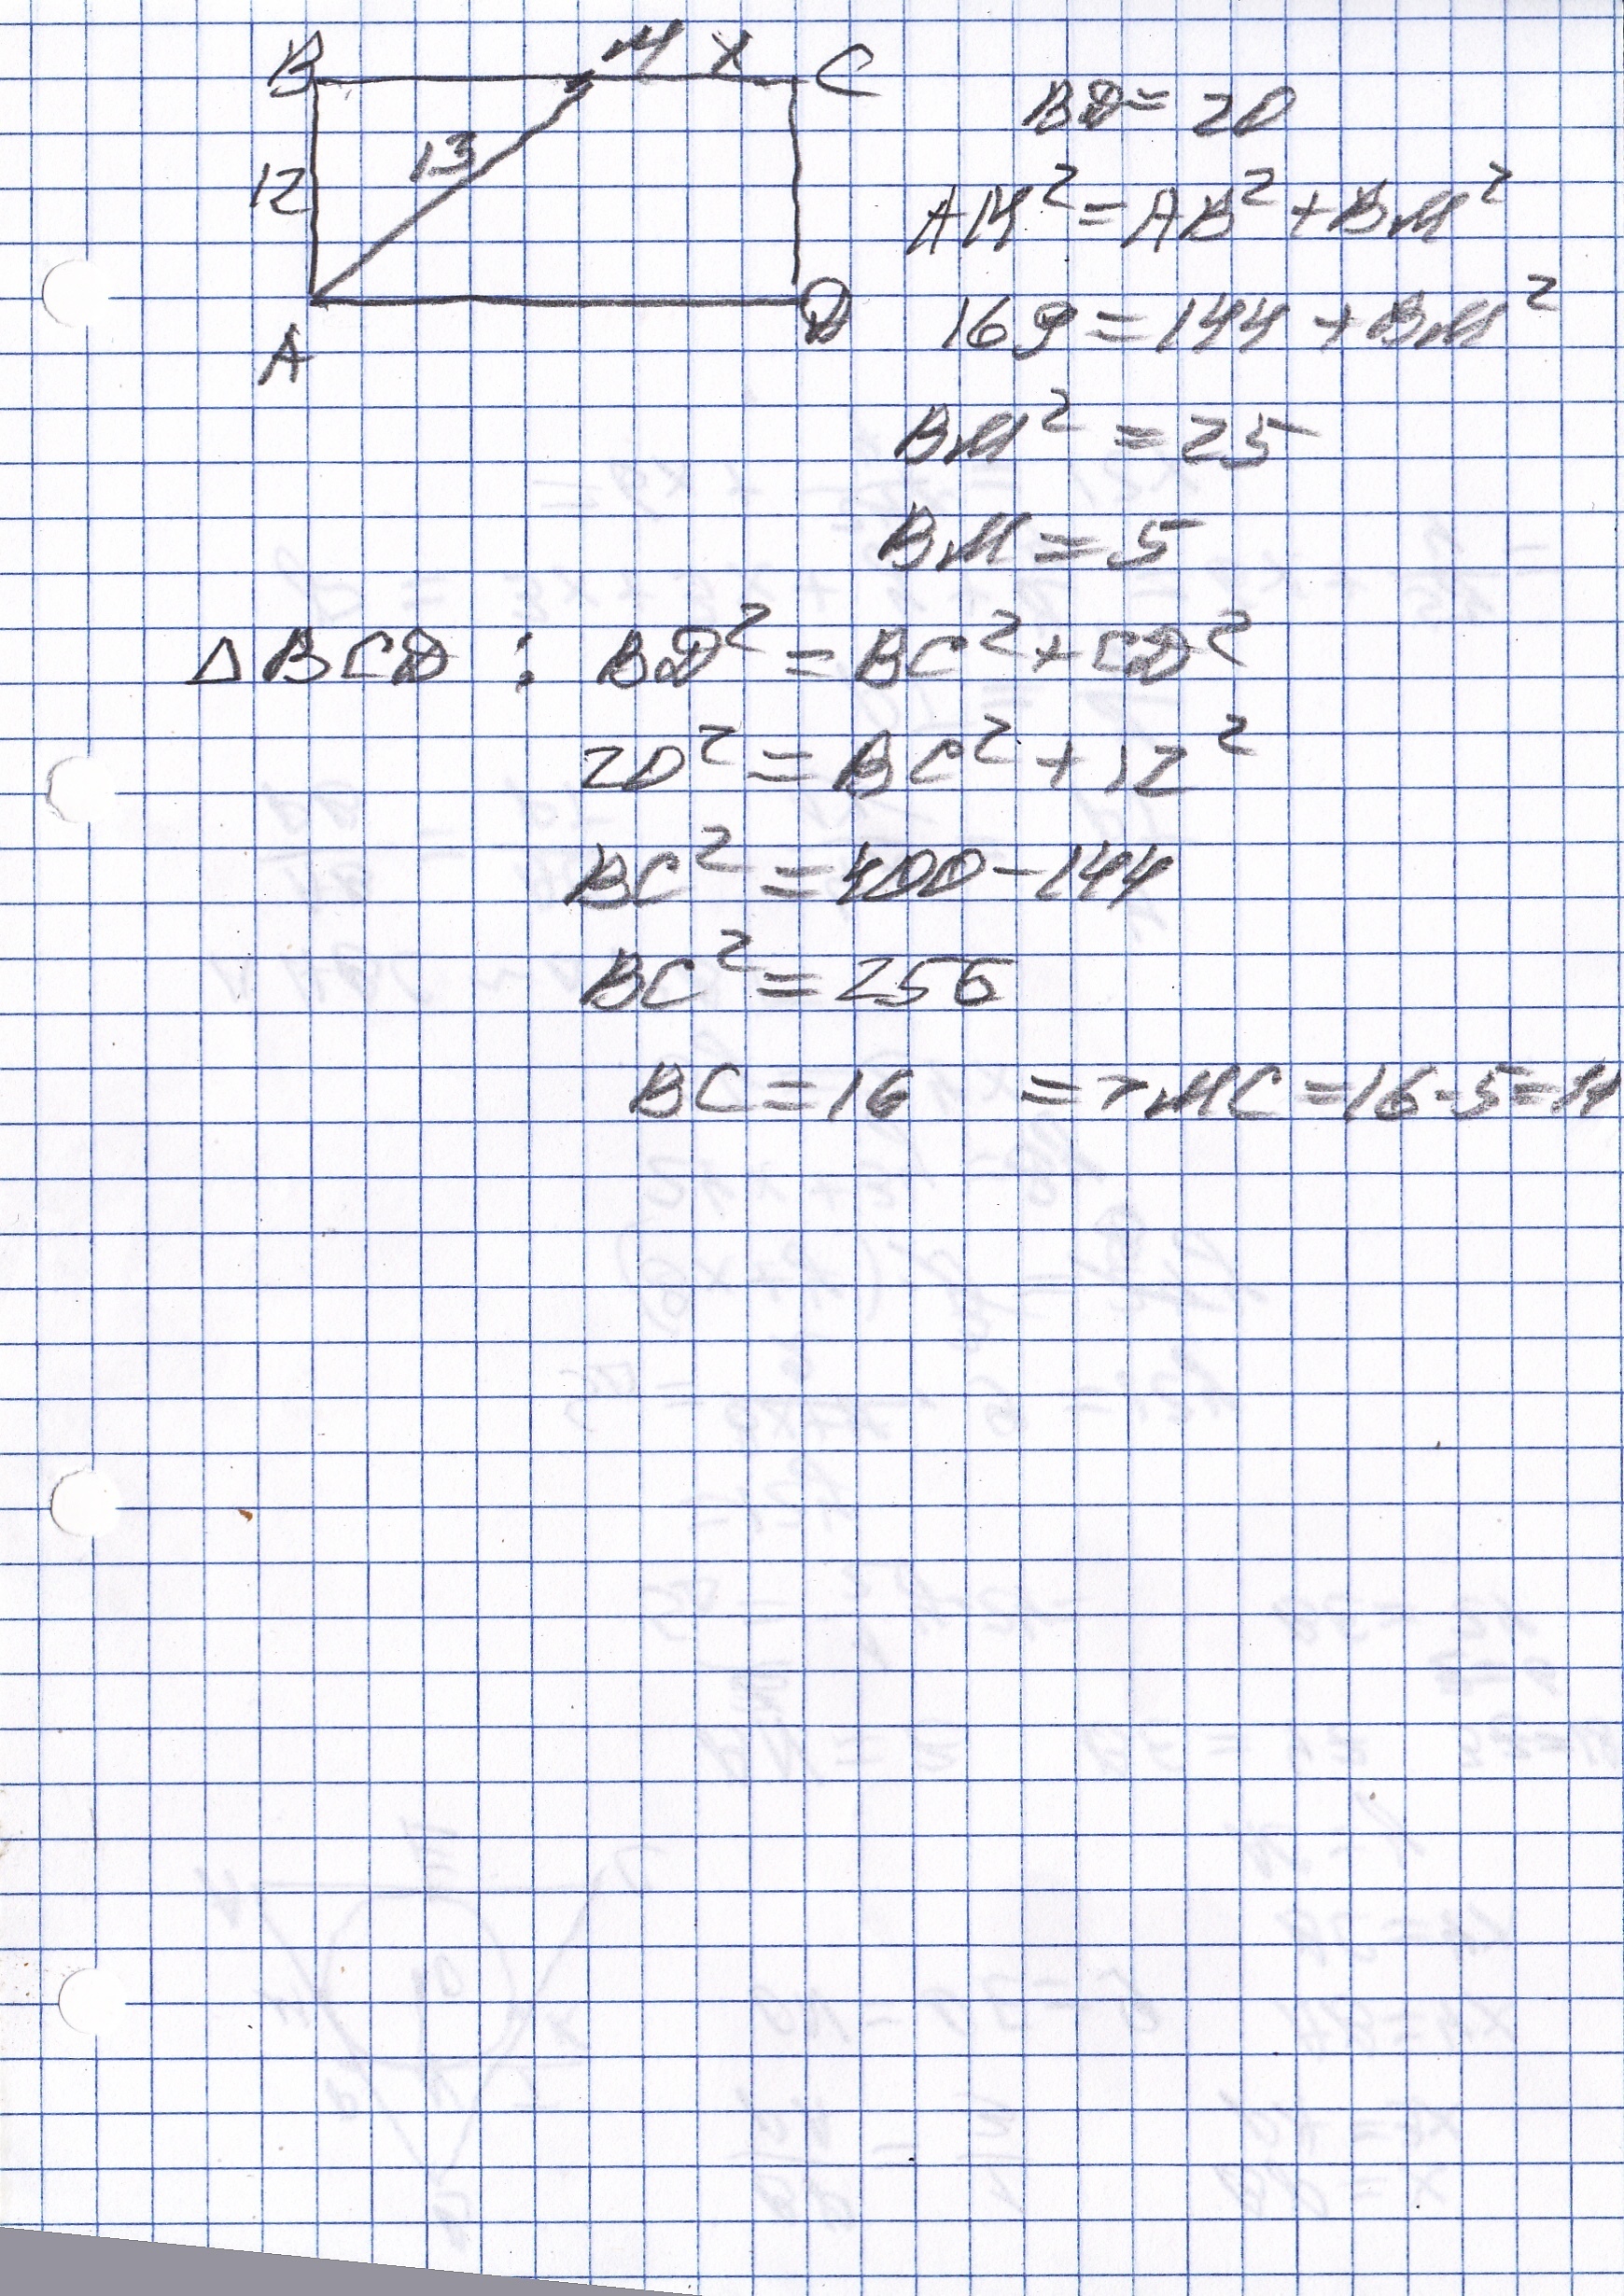 B M x C
12 13
A D
BD = 20
AM² = AB² + BM²
169 = 144 + BM²
BM² = 25
BM = 5
△BCD : BD² = BC² + CD²
20² = BC² + 12²
BC² = 400 - 144
BC² = 256
BC = 16 => MC = 16 - 5 = 11